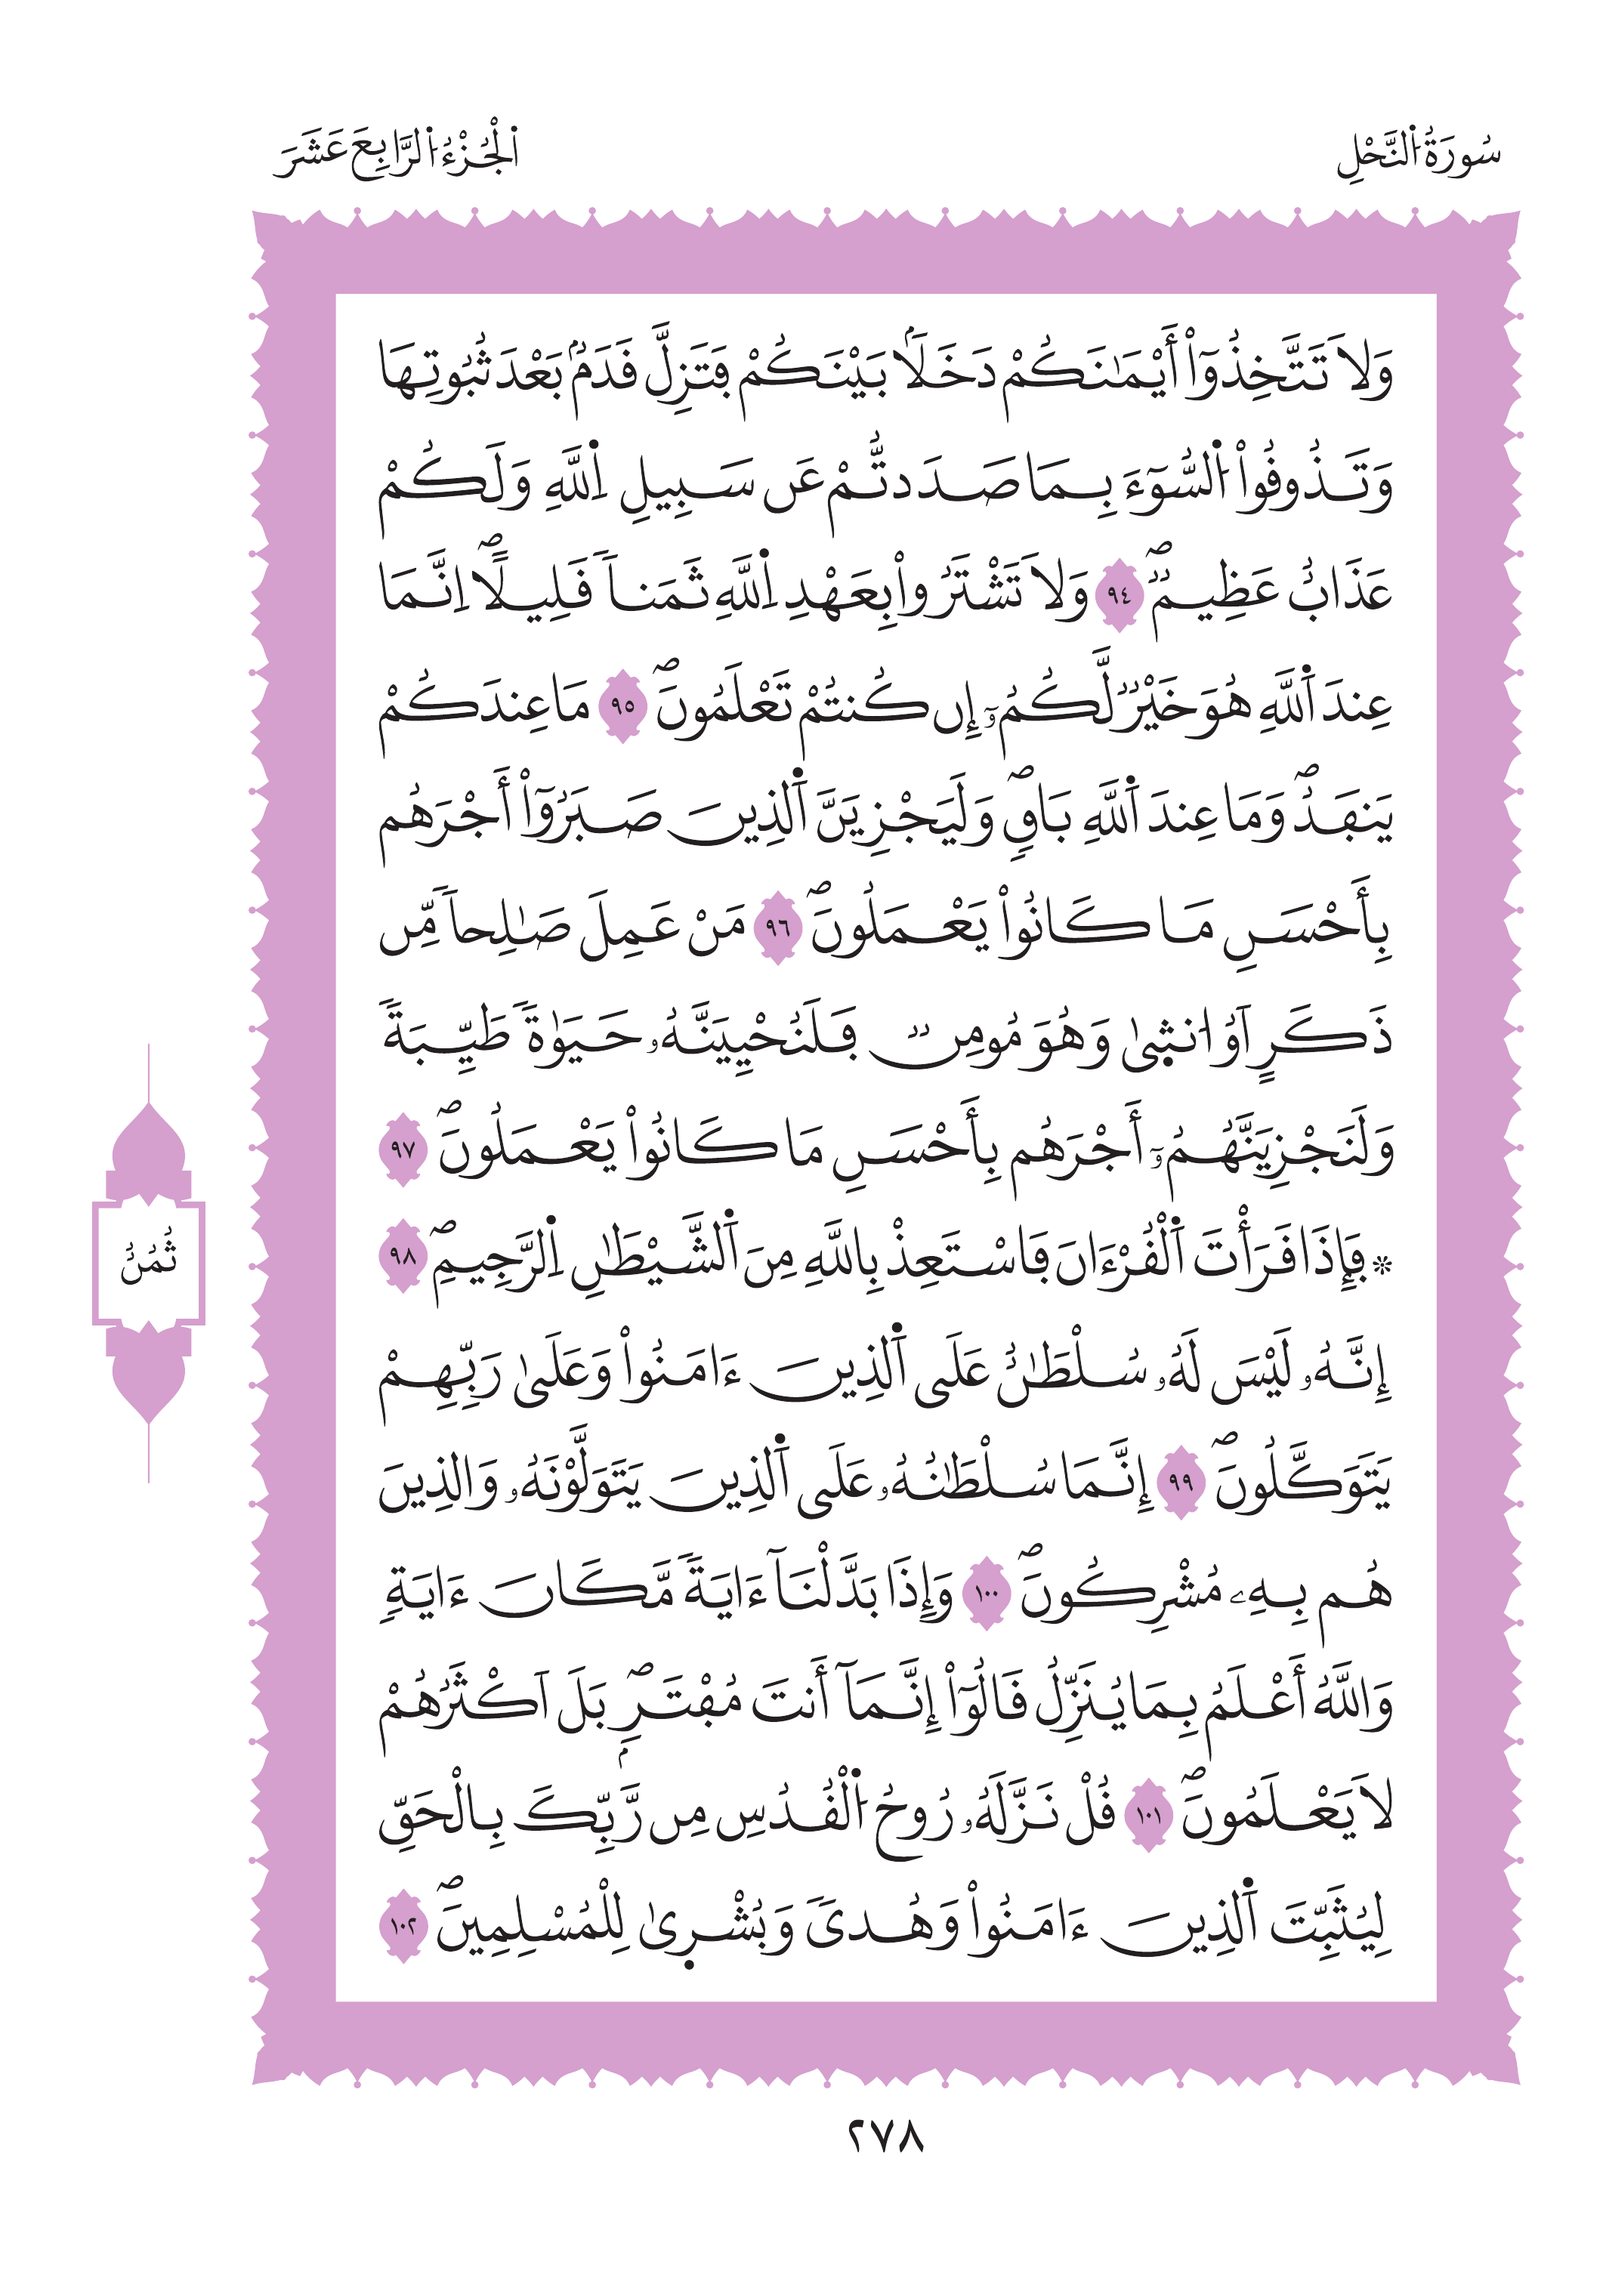 سُورَةُ اُ۬لنَّحْلِ
اَ۬لْجُزْءُ اُ۬لرَّابِعَ عَشَرَ
وَلَا تَتَّخِذُوٓاْ أَيْمَٰنَكُمْ دَخَلَاۢ بَيْنَكُمْ فَتَزِلَّ قَدَمُۢ بَعْدَ ثُبُوتِهَا
وَتَذُوقُواْ اُ۬لسُّوٓءَ بِمَا صَدَدتُّمْ عَن سَبِيلِ اِ۬للَّهِ وَلَكُمْ
عَذَابٌ عَظِيمٞۖ ٩٤ وَلَا تَشْتَرُواْ بِعَهْدِ اِ۬للَّهِ ثَمَناٗ قَلِيلًاۖ اِنَّمَا
عِندَ اَ۬للَّهِ هُوَ خَيْرٞ لَّكُمُۥٓ إِن كُنتُمْ تَعْلَمُونَۖ ٩٥ مَا عِندَكُمْ
يَنفَدُۖ وَمَا عِندَ اَ۬للَّهِ بَاقٖۖ وَلَيَجْزِيَنَّ اَ۬لذِينَ صَبَرُوٓاْ أَجْرَهُم
بِأَحْسَنِ مَا كَانُواْ يَعْمَلُونَۖ ٩٦ مَنْ عَمِلَ صَٰلِحاٗ مِّن
ذَكَرٍ اَوُ ا۟نث۪ىٰ وَهُوَ مُومِنٞ فَلَنُحْيِيَنَّهُۥ حَيَوٰةٗ طَيِّبَةٗ
وَلَنَجْزِيَنَّهُمُۥٓ أَجْرَهُم بِأَحْسَنِ مَا كَانُواْ يَعْمَلُونَۖ ٩٧
۞ فَإِذَا قَرَأْتَ اَ۬لْقُرْءَانَ فَاسْتَعِذْ بِاللَّهِ مِنَ اَ۬لشَّيْطَٰنِ اِ۬لرَّجِيمِۖ ٩٨
إِنَّهُۥ لَيْسَ لَهُۥ سُلْطَٰنٌ عَلَى اَ۬لذِينَ ءَامَنُواْ وَعَلَىٰ رَبِّهِمْ
يَتَوَكَّلُونَۖ ٩٩ إِنَّمَا سُلْطَٰنُهُۥ عَلَى اَ۬لذِينَ يَتَوَلَّوْنَهُۥ وَالذِينَ
هُم بِهِۦ مُشْرِكُونَۖ ١٠٠ وَإِذَا بَدَّلْنَآ ءَايَةٗ مَّكَانَ ءَايَةٖ
وَاللَّهُ أَعْلَمُ بِمَا يُنَزِّلُ قَالُوٓاْ إِنَّمَآ أَنتَ مُفْتَرِۢۖ بَلَ اَكْثَرُهُمْ
لَا يَعْلَمُونَۖ ١٠١ قُلْ نَزَّلَهُۥ رُوحُ اُ۬لْقُدُسِ مِن رَّبِّكَ بِالْحَقِّ
لِيُثَبِّتَ اَ۬لذِينَ ءَامَنُواْ وَهُدىٗ وَبُشْر۪ىٰ لِلْمُسْلِمِينَۖ ١٠٢
ثُمُنُ
٢٧٨